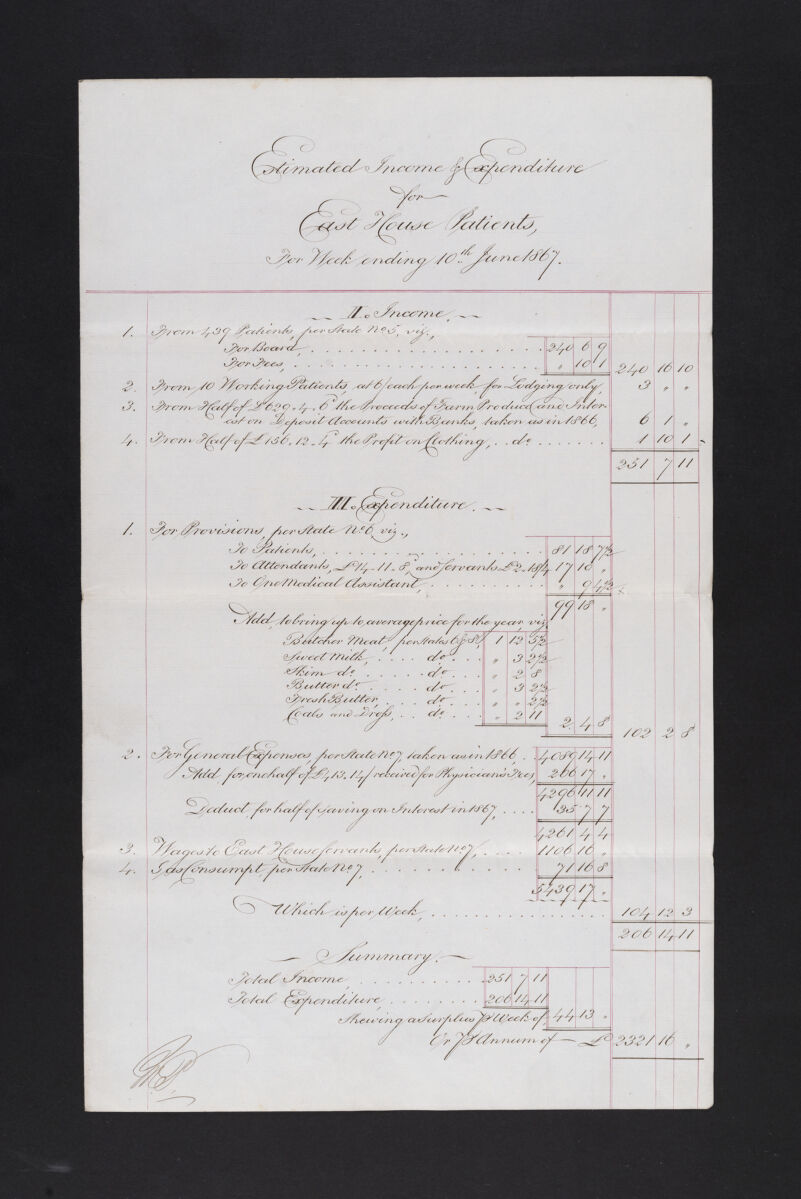 Estimated Income & Expenditure
for
East House Patients,
For Week ending 10th June 1867.
I. Income.
1. From 439 Patients, per State No 5, viz.,
For Board, 240 6 9
For Fees, " 10 1 240 16 10
2. From 10 Working Patients, at 6/ each per week, for Lodging only, 3 " "
3. From Half of £629.4.6d the Proceeds of Farm Produce and Inter-
est on Deposit Accounts with Banks, taken as in 1866, 6 1 "
4. From Half of £156.12.4d the Profit on Clothing, do 1 10 1
251 7 11
II. Expenditure.
1. For Provisions, per State No 6, viz.,
To Patients, 81 18 7½
To Attendants, £14-11-8d, and Servants £2-18/4 17 10 "
To One Medical Assistant, " 9 4½
99 18 "
Add, to bring up to average price for the year, viz
Butcher Meat, per States 6 & 8, 1 12 5½
Sweet Milk, do " 3 2½
Skim do do " 2 8
Butter do do " 3 2½
Fresh Butter, do " " 2½
Coals and Dross, do " 2 11 2 4 8
102 2 8
2. For General Expenses, per State No 7, taken as in 1866, 4089 14 11
Add, for one half of £413.14/ received for Physician's Fees, 206 17 "
4296 11 11
Deduct, for half of saving on Interest in 1867, 35 7 7
4261 4 4
3. Wages to East House Servants, per State No 7, 1106 16 "
4. Gas Consumpt, per State No 7, 71 16 8
5439 17 "
Which is per Week, 104 12 3
206 14 11
Summary.
Total Income, 251 7 11
Total Expenditure, 206 14 11
Shewing a Surplus P Week of 44 13 "
Or P Annum of £ 2321 16 "